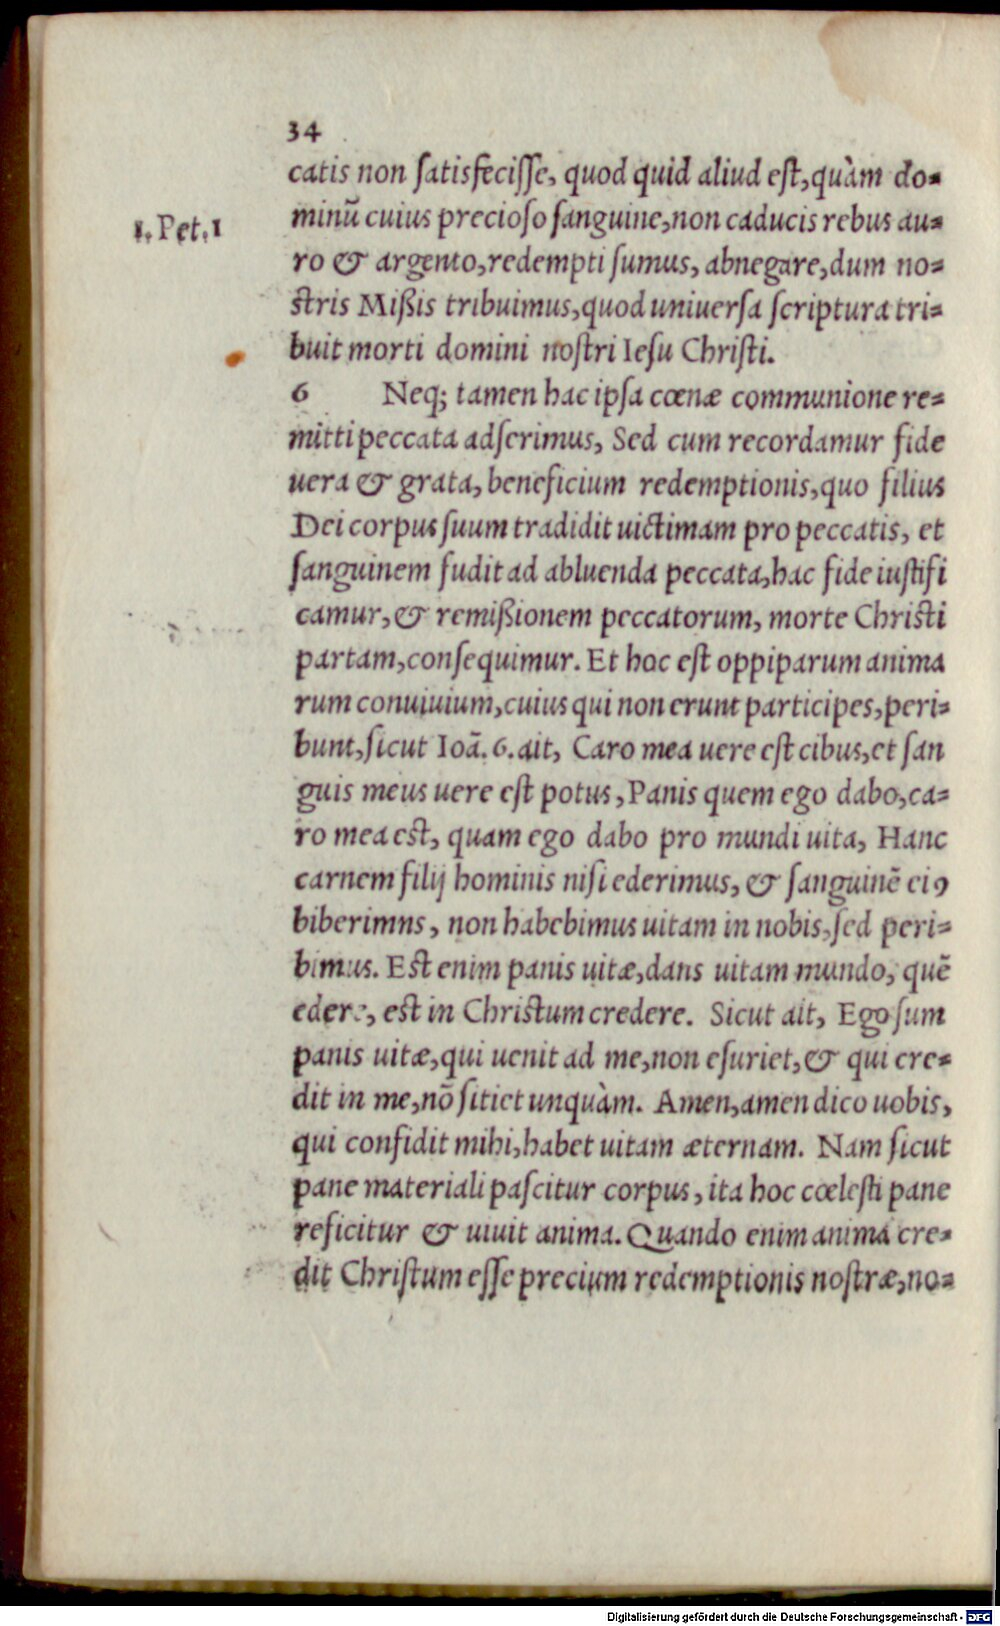 34
catis non ſatisfeciſſe, quod quid aliud eſt, quàm do-
minū cuius precioſo ſanguine, non caducis rebus au-
1. Pet. 1
ro & argento, redempti ſumus, abnegare, dum no-
ſtris Mißis tribuimus, quod uniuerſa ſcriptura tri-
buit morti domini noſtri Ieſu Chriſti.
6 Neq; tamen hac ipſa cœnæ communione re-
mitti peccata adſerimus, Sed cum recordamur fide
uera & grata, beneficium redemptionis, quo filius
Dei corpus ſuum tradidit uictimam pro peccatis, et
ſanguinem fudit ad abluenda peccata, hac fide iuſtifi
camur, & remißionem peccatorum, morte Chriſti
partam, conſequimur. Et hoc eſt oppiparum anima
rum conuiuium, cuius qui non erunt participes, peri-
bunt, ſicut Ioā. 6. ait, Caro mea uere eſt cibus, et ſan
guis meus uere eſt potus, Panis quem ego dabo, ca-
ro mea eſt, quam ego dabo pro mundi uita, Hanc
carnem filij hominis niſi ederimus, & ſanguinē eiꝰ
biberimns, non habebimus uitam in nobis, ſed peri-
bimus. Eſt enim panis uitæ, dans uitam mundo, quē
edere, eſt in Chriſtum credere. Sicut ait, Ego ſum
panis uitæ, qui uenit ad me, non eſuriet, & qui cre-
dit in me, nō ſitiet unquàm. Amen, amen dico uobis,
qui confidit mihi, habet uitam æternam. Nam ſicut
pane materiali paſcitur corpus, ita hoc cœleſti pane
reficitur & uiuit anima. Quando enim anima cre-
dit Chriſtum eſſe precium redemptionis noſtræ, no-
Digitalisierung gefördert durch die Deutsche Forschungsgemeinschaft - DFG